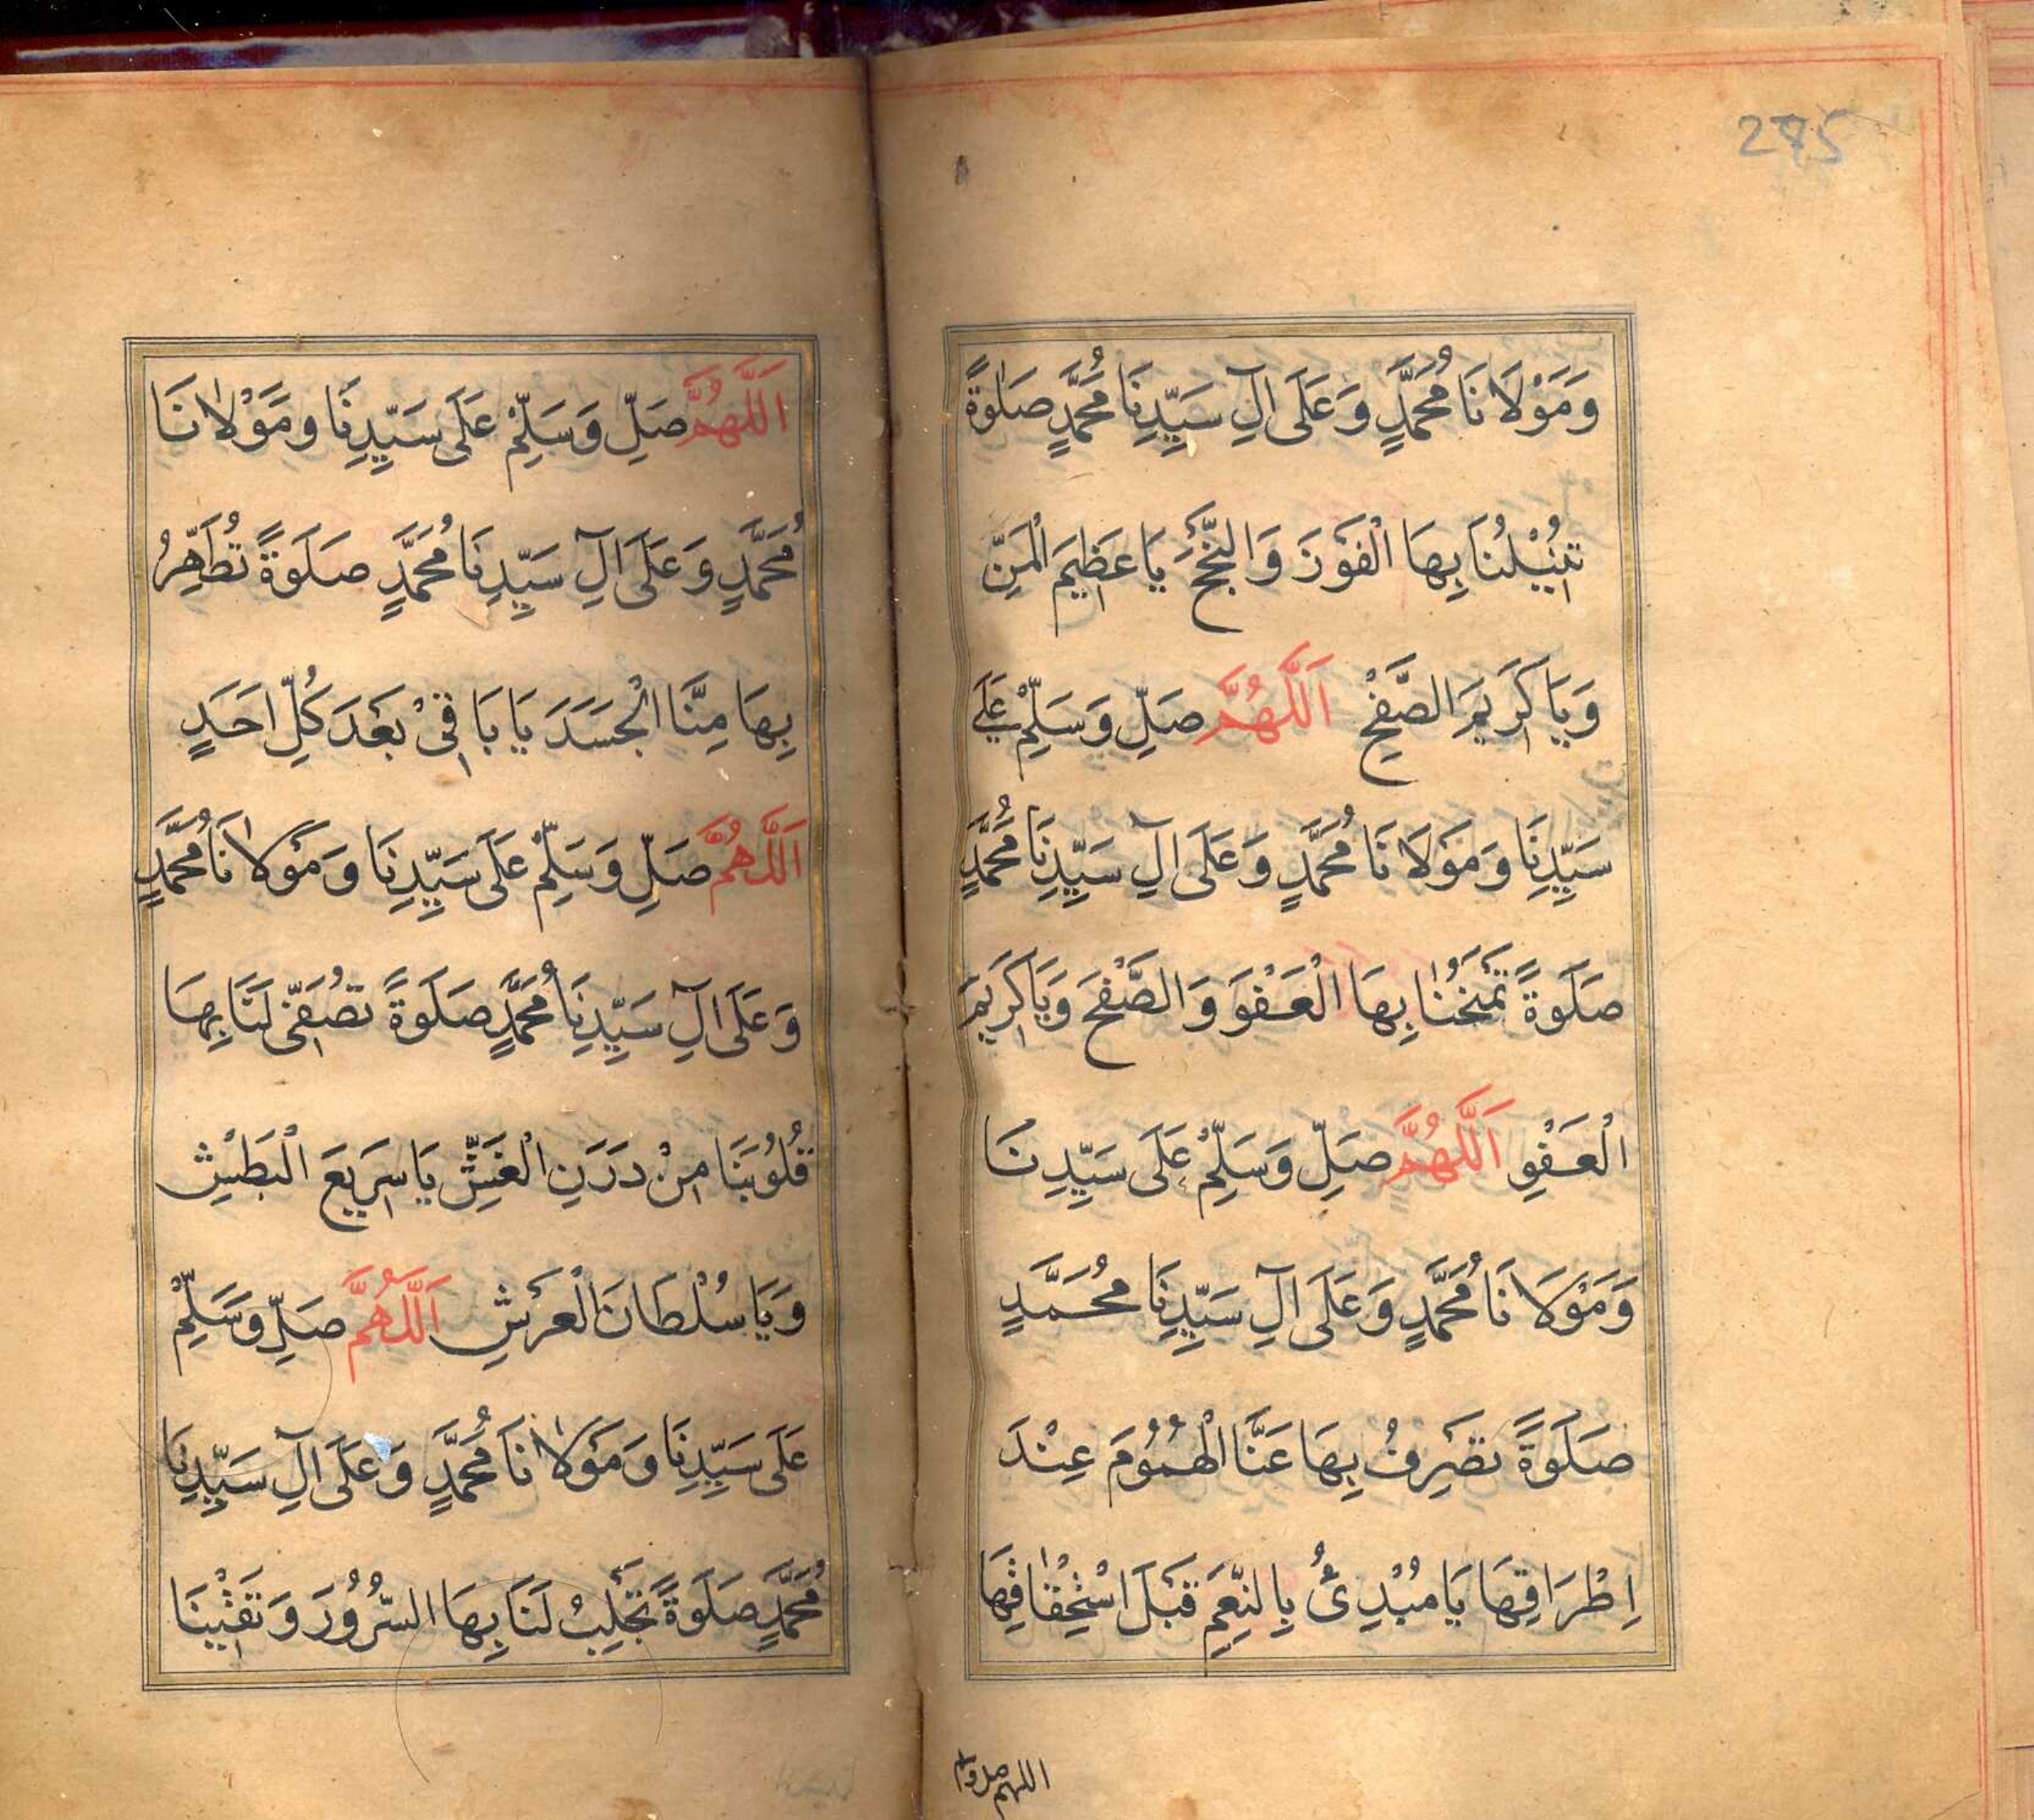 275
وَمَوْلَانَا مُحَمَّدٍ وَعَلَى اٰلِ سَيِّدِنَا مُحَمَّدٍ صَلٰوةً
تُنِيْلُنَا بِهَا الْفَوْزَ وَالنُّجْحَ يَا عَظِيْمَ الْمَنِّ
وَيَا كَرِيْمَ الصَّفْحِ اَللّٰهُمَّ صَلِّ وَسَلِّمْ عَلٰى
سَيِّدِنَا وَمَوْلَانَا مُحَمَّدٍ وَعَلَى اٰلِ سَيِّدِنَا مُحَمَّدٍ
صَلٰوةً تَمْنَحُنَا بِهَا الْعَفْوَ وَالصَّفْحَ وَيَا كَرِيْمَ
الْعَفْوِ اَللّٰهُمَّ صَلِّ وَسَلِّمْ عَلَى سَيِّدِنَا
وَمَوْلَانَا مُحَمَّدٍ وَعَلَى اٰلِ سَيِّدِنَا مُحَمَّدٍ
صَلٰوةً تَصْرِفُ بِهَا عَنَّا الْهُمُوْمَ عِنْدَ
اِطْرَاقِهَا يَا مُبْدِئُ بِالنِّعَمِ قَبْلَ اسْتِحْقَاقِهَا
اللهم صل وسلم
اَللّٰهُمَّ صَلِّ وَسَلِّمْ عَلَى سَيِّدِنَا وَمَوْلَانَا
مُحَمَّدٍ وَعَلَى اٰلِ سَيِّدِنَا مُحَمَّدٍ صَلٰوةً تُطَهِّرُ
بِهَا مِنَّا الْجَسَدَ يَا بَاقِيْ بَعْدَ كُلِّ اَحَدٍ
اَللّٰهُمَّ صَلِّ وَسَلِّمْ عَلَى سَيِّدِنَا وَمَوْلَانَا مُحَمَّدٍ
وَعَلَى اٰلِ سَيِّدِنَا مُحَمَّدٍ صَلٰوةً تُصَفِّى لَنَا بِهَا
قُلُوْبَنَا مِنْ دَرَنِ الْغِشِّ يَا سَرِيعَ الْبَطْشِ
وَيَا سُلْطَانَ الْعَرْشِ اَللّٰهُمَّ صَلِّ وَسَلِّمْ
عَلَى سَيِّدِنَا وَمَوْلَانَا مُحَمَّدٍ وَعَلَى اٰلِ سَيِّدِنَا
مُحَمَّدٍ صَلٰوةً تَجْلِبُ لَنَا بِهَا السُّرُوْرَ وَتَقِيْنَا